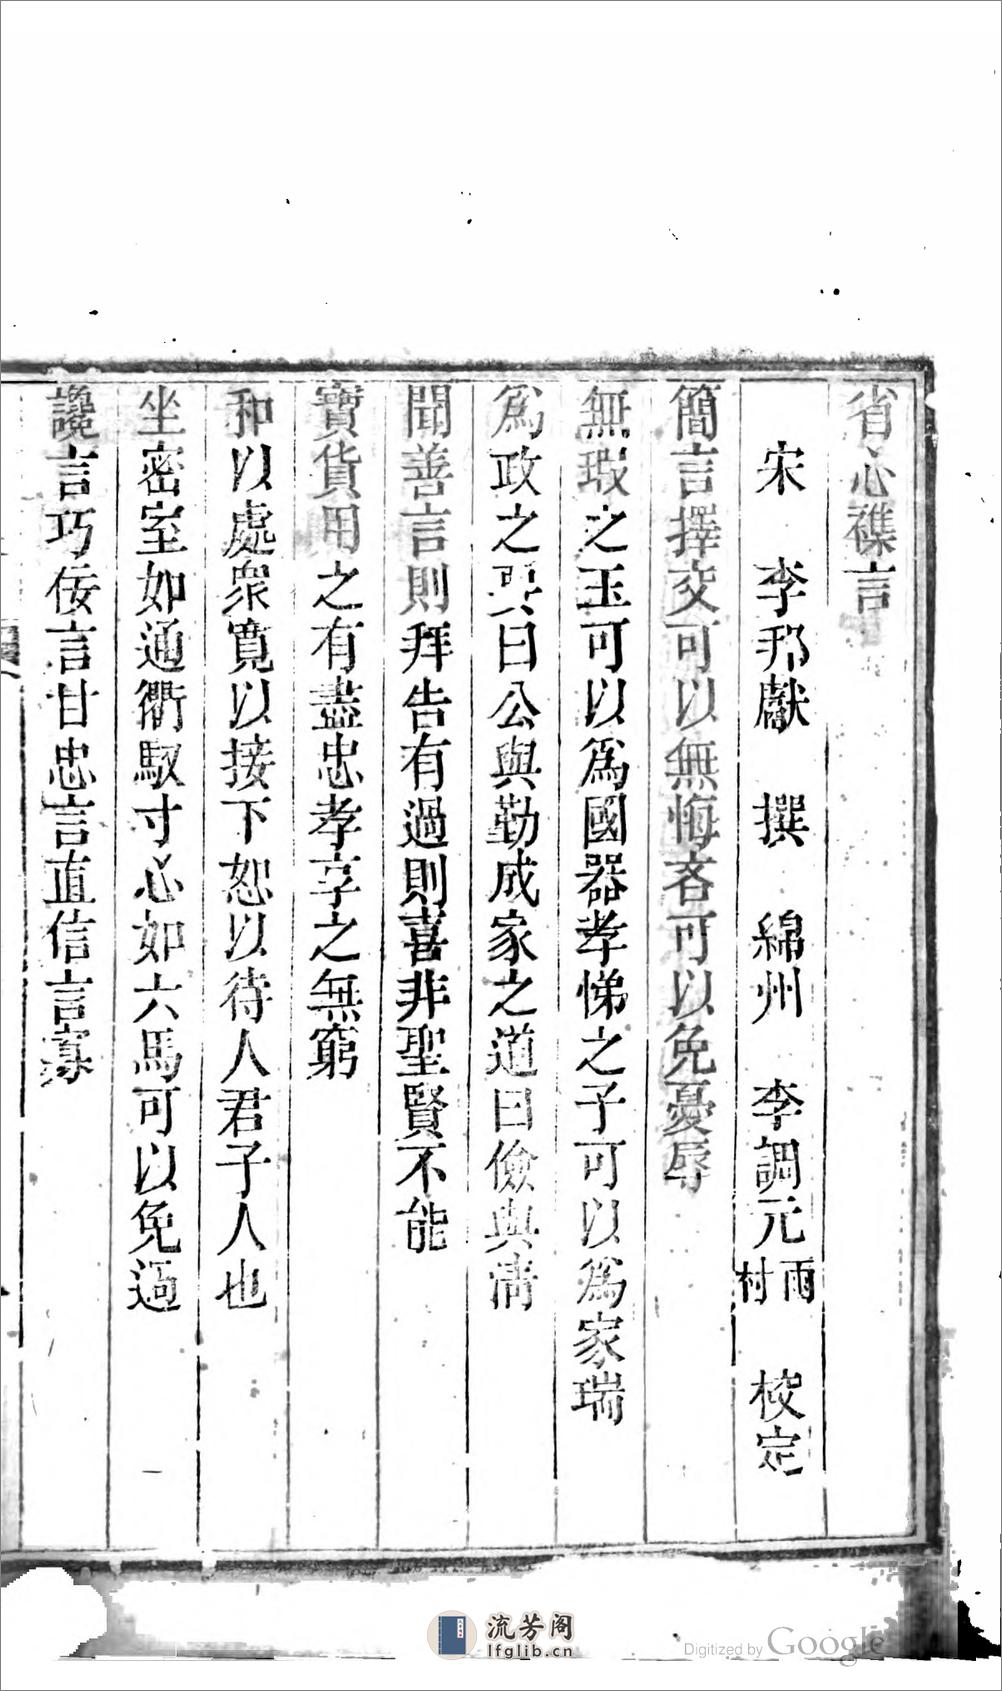 省心襍言
宋 李邦獻 撰 綿州 李調元雨村 校定
簡言擇交可以無悔吝可以免憂辱
無瑕之玉可以爲國器孝悌之子可以爲家瑞
爲政之要曰公與勤成家之道曰儉與清
聞善言則拜告有過則喜非聖賢不能
寶貨用之有盡忠孝享之無窮
和以處衆寬以接下恕以待人君子人也
坐密室如通衢馭寸心如六馬可以免過
讒言巧佞言甘忠言直信言寡
流芳阁
lfglib.cn
Digitized by Google